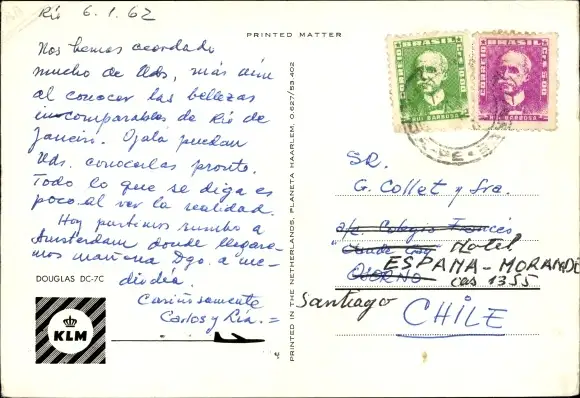 Río 6.1.62
Nos hemos acordado
mucho de Uds, más aún
al conocer las bellezas
incomparables de Río de
Janeiro. Ojalá puedan
Uds. conocerlas pronto.
Todo lo que se diga es
poco al ver la realidad.
Hoy partimos rumbo a
Amsterdam donde llegare-
mos mañana Dgo. a me-
diodía.
Cariñosamente
Carlos y Ria.=
DOUGLAS DC-7C
KLM
PRINTED MATTER
PRINTED IN THE NETHERLANDS, PLANETA HAARLEM, O.627/53.402
CORREIO BRASIL CR$ 10.00
RUI BARBOSA
CORREIO BRASIL CR$ 5.00
RUI BARBOSA
SR.
G. Collet y Sra.
a/c. Colegio Francés
Hotel
ESPAÑA-MORANDE
cas 1355
Santiago
CHILE